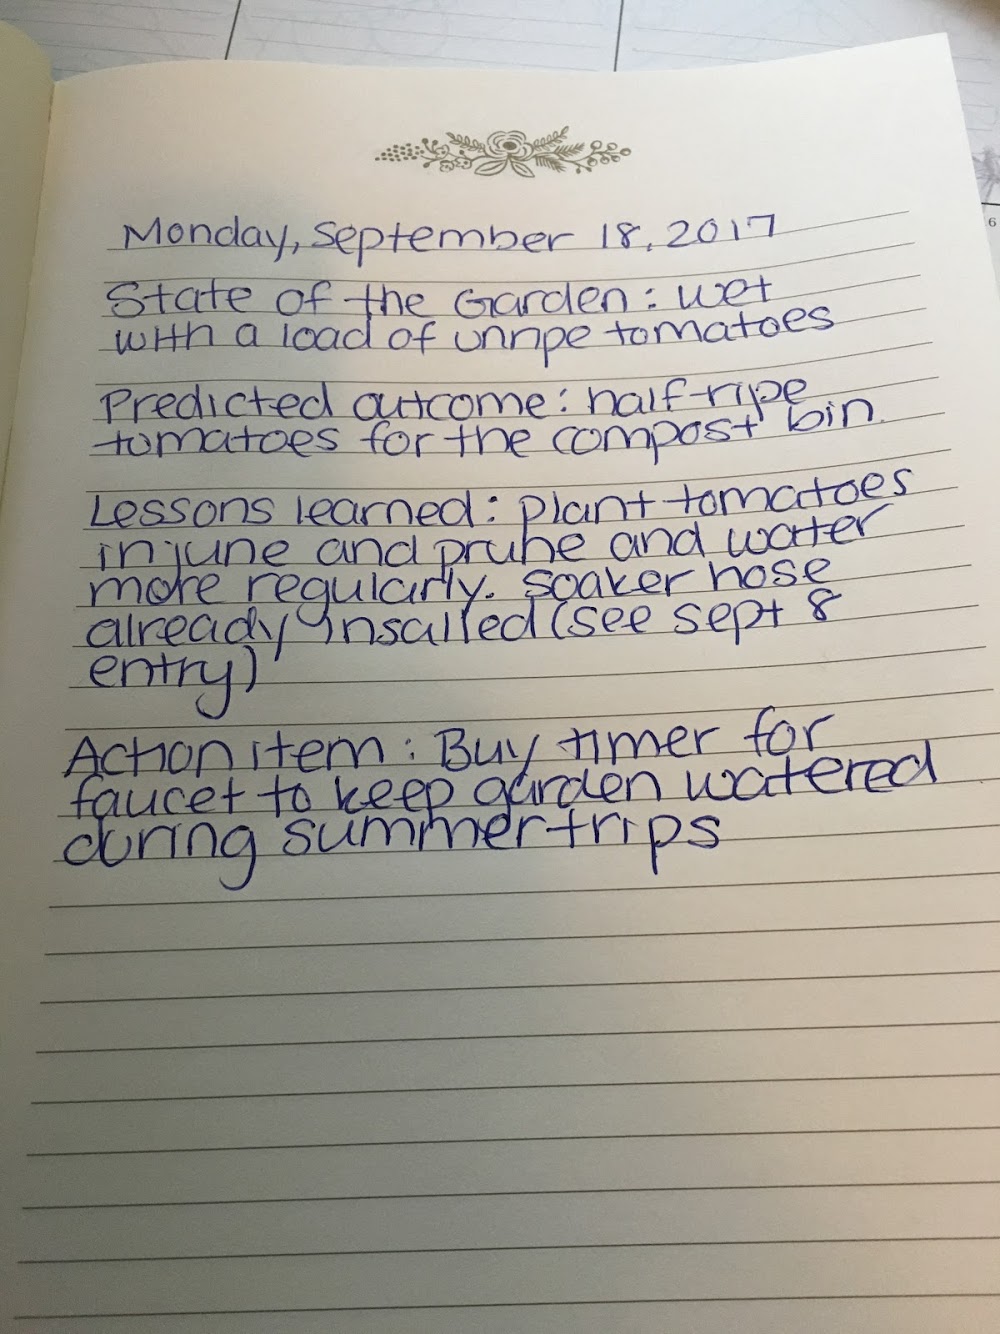 Monday, September 18, 2017
State of the Garden: wet
with a load of unripe tomatoes
Predicted outcome: half-ripe
tomatoes for the compost bin.
Lessons learned: Plant tomatoes
in june and prune and water
more regularly. Soaker hose
already insalled (see sept 8
entry)
Action item: Buy timer for
faucet to keep garden watered
during summer trips
6